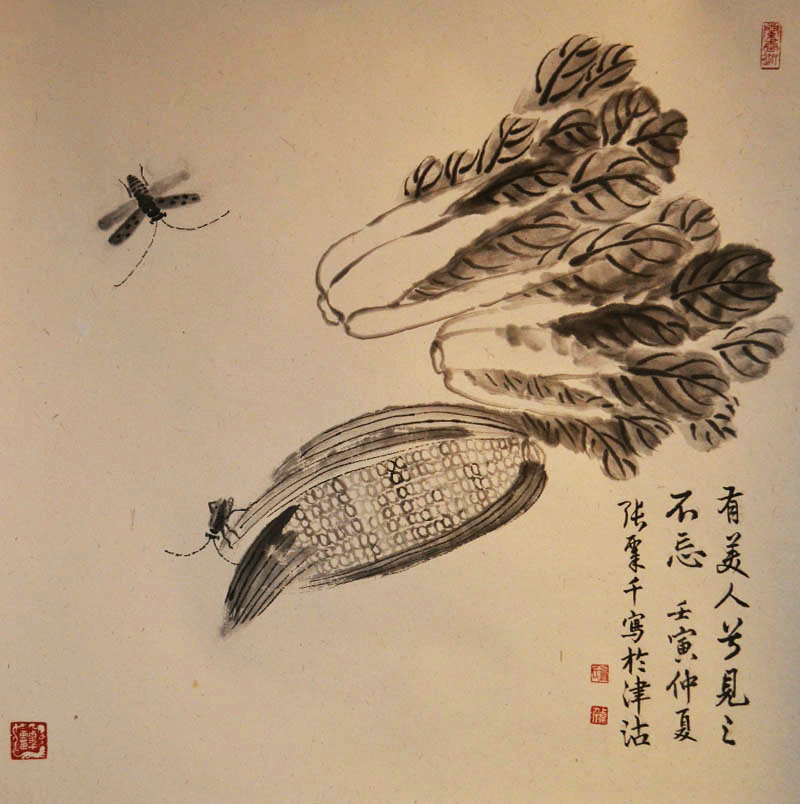 有美人兮見之
不忘 壬寅仲夏
張秉千寫於津沽